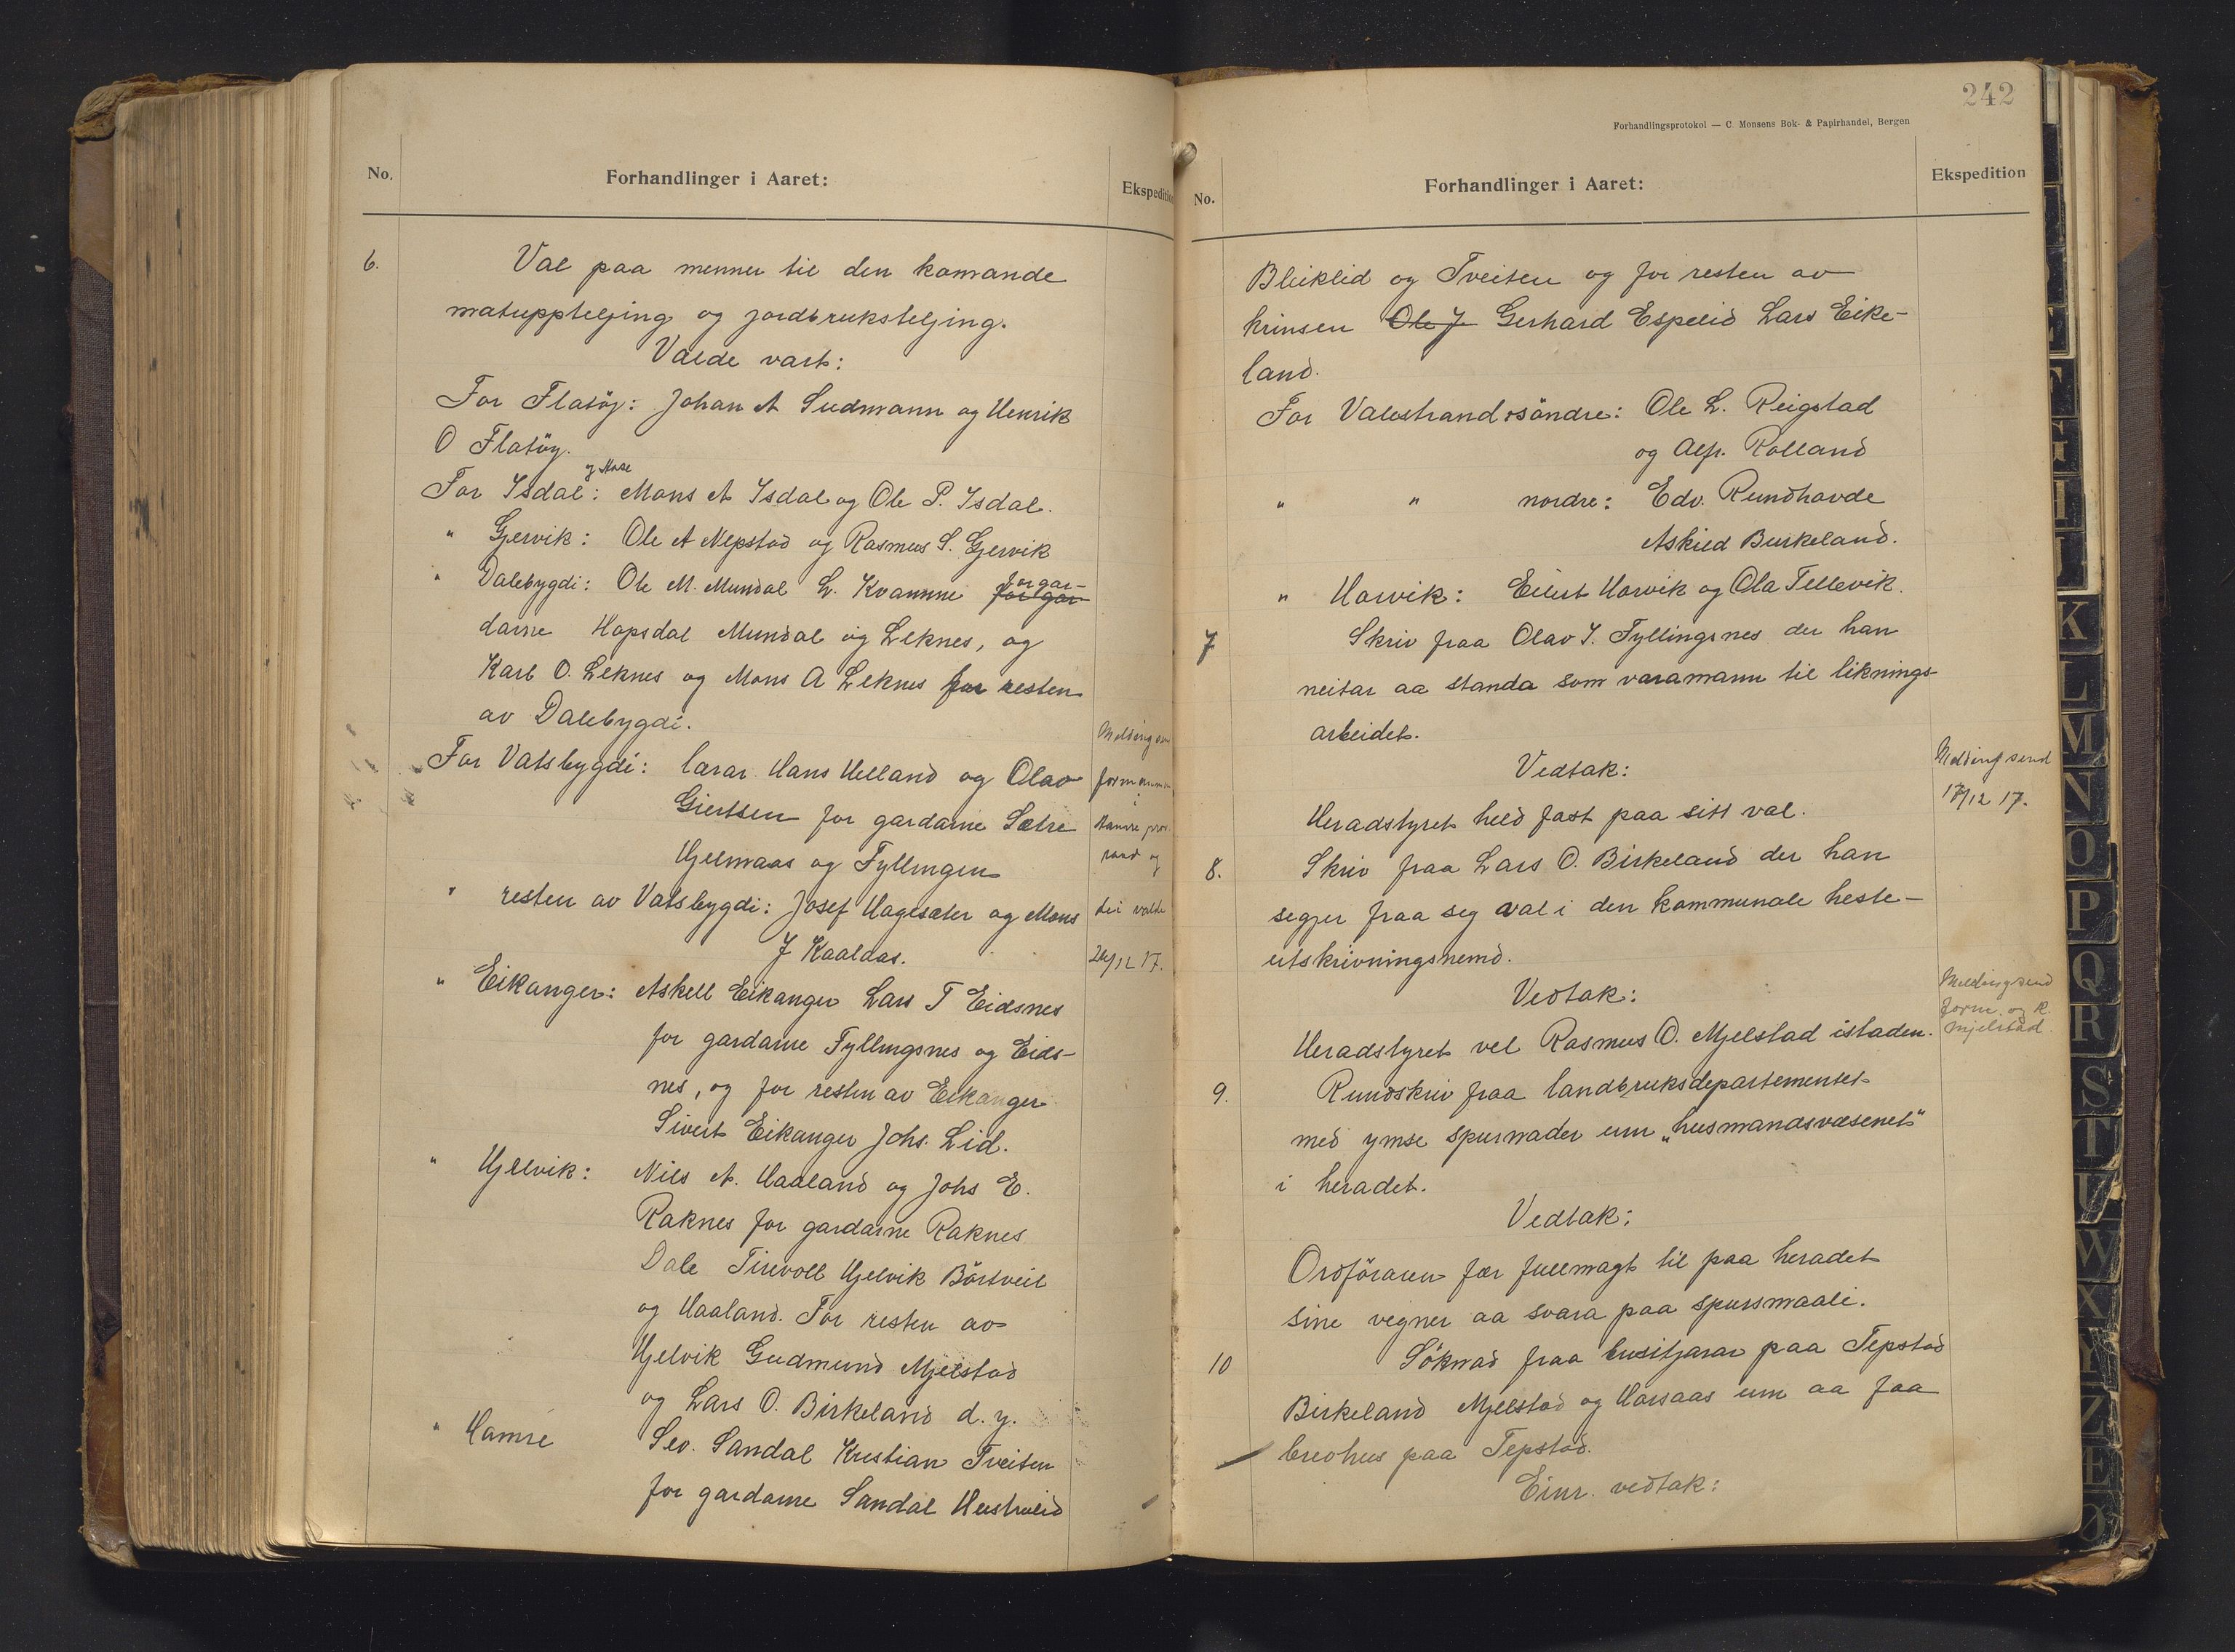 No.
Forhandlinger i Aaret:
Ekspedition
6.
Val paa menner til den komande
matuppteljing og jordbruksteljing.
Valde vart:
For Flatöy: Johan A Sudmann og Henrik
O Flatöy.
og Mose
For Isdal: Mons A Isdal og Ole P. Isdal.
" Gjervik: Ole A Nepstad og Rasmus S. Gjervik
" Dalebygdi: Ole M. Mundal L. Kvamme for gar for gar-
darne Hopsdal Mundal og Leknes, og
Karl O. Leknes og Mons A Leknes for resten
av Dalebygdi.
For Vatsbygdi: lærar Hans Helland og Olav
Giertsen for gardarne Sætre
Hjelmaas og Fyllingen
" resten av Vatsbygdi: Josef Hagesæter og Mons
J Kaaldas.
Melding
formannen
i
Hamre
og
dei valde
20/12 17.
" Eikanger: Askell Eikanger Lars T Eidsnes
for gardarne Fyllingsnes og Eids-
nes, og for resten av Eikanger
Sivert Eikanger Johs. Lid.
" Hjelvik: Nils A. Haaland og Johs E.
Raknes for gardarne Raknes
Dale Tirevoll Hjelvik Börtveit
og Haaland. For resten av
Hjelvik Gudmund Mjelstad
og Lars O. Birkeland d. y.
" Hamre Sev. Sandal Kristian Tveiten
for gardarne Sandal Hustvelid
242
Forhandlingsprotokol — C. Monsens Bok- & Papirhandel, Bergen
No.
Forhandlinger i Aaret:
Ekspedition
Bleiklid og Tveiten og for resten av
krinsen Ole J. Gerhard Espelid Lars Eike-
land.
For Valestrand söndre: Ole L. Reigstad
og Alfr. Rolland
" " nordre: Edv. Rundhovde
Askild Burkeland.
" Horvik: Eilert Horvik og Ola Tellevik.
7 Skriv fraa Olav I. Fyllingsnes der han
neitar aa standa som varamann til liknings-
arbeidet.
Vedtak:
Heradstyret held fast paa sitt val.
Melding send
17/12 17.
8. Skriv fraa Lars O. Birkeland der han
segjer fraa seg val i den kommunale heste-
utskrivningsnemd.
Vedtak:
Heradstyret vel Rasmus O. Mjelstad istaden.
Melding send
form. og R.
Mjelstad.
9. Rundskriv fraa landbruksdepartementet
med ymse spurnader um „husmandsvæsenet"
i heradet.
Vedtak:
Ordföraren fær fullmagt til paa heradet
sine vegner aa svara paa spursmaali.
10 Söknad fraa busitjarar paa Tepstad
Birkeland Mjelstad og Horsaas um aa faa
brevhus paa Tepstad.
Einr. vedtak:
K
L
M
N
O
P
Q
R
S
T
U
W
X
Y
Z
Æ
Ø